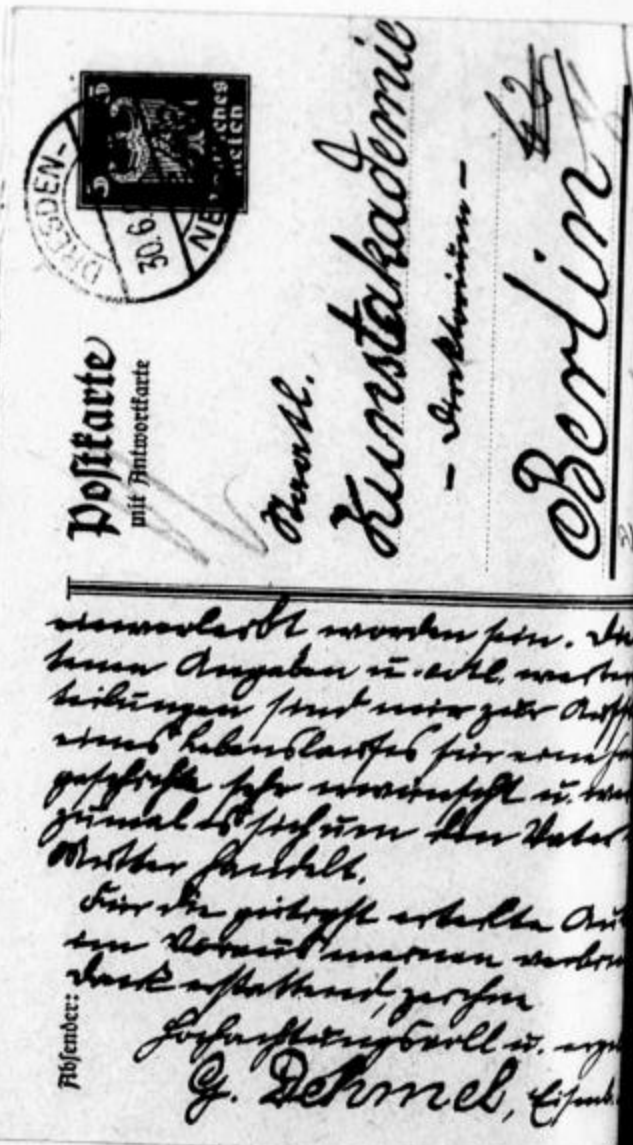 DRESDEN-
30.6.
NE
5 5
Deutsches
Reich
Postkarte
mit Antwortkarte
Staatl.
Kunstakademie
- Direktorium -
Berlin
einverleibt worden sein. Die
tenen Angaben u. evtl. weiter
teilungen sind mir zur Aufst
eines Lebenslaufes für eine Fa
geschichte sehr erwünscht u. wer
zumal es sich um den Vater
Mutter handelt.
Für die gütigst erteilte Aus
im Voraus meinen verbin
Dank erstattend, zeichne
Hochachtungsvoll u. erge
G. Dehmel, Eisenb.
Absender: